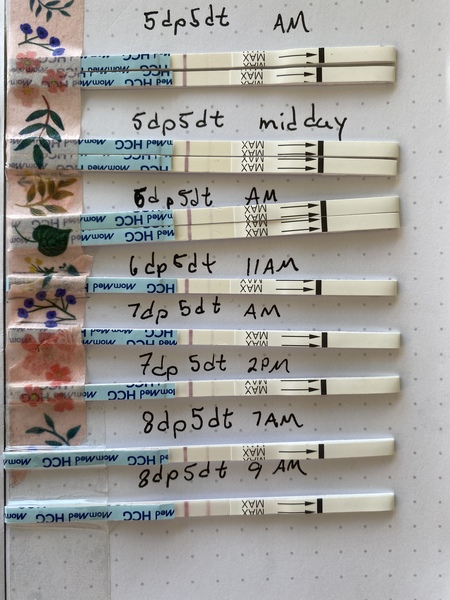 5dp5dt AM
MomMed HCG MAX
MAX
5dp5dt midday
MomMed HCG MAX
MAX
MAX
6dp5dt AM
MomMed HCG MAX
MAX
MAX
6dp5dt 11AM
MomMed HCG MAX
7dp5dt AM
MomMed HCG MAX
7dp5dt 2PM
MomMed HCG MAX
8dp5dt 7AM
MomMed HCG MomMed HCG MAX
8dp5dt 9AM
MomMed HCG MomMed HCG MAX